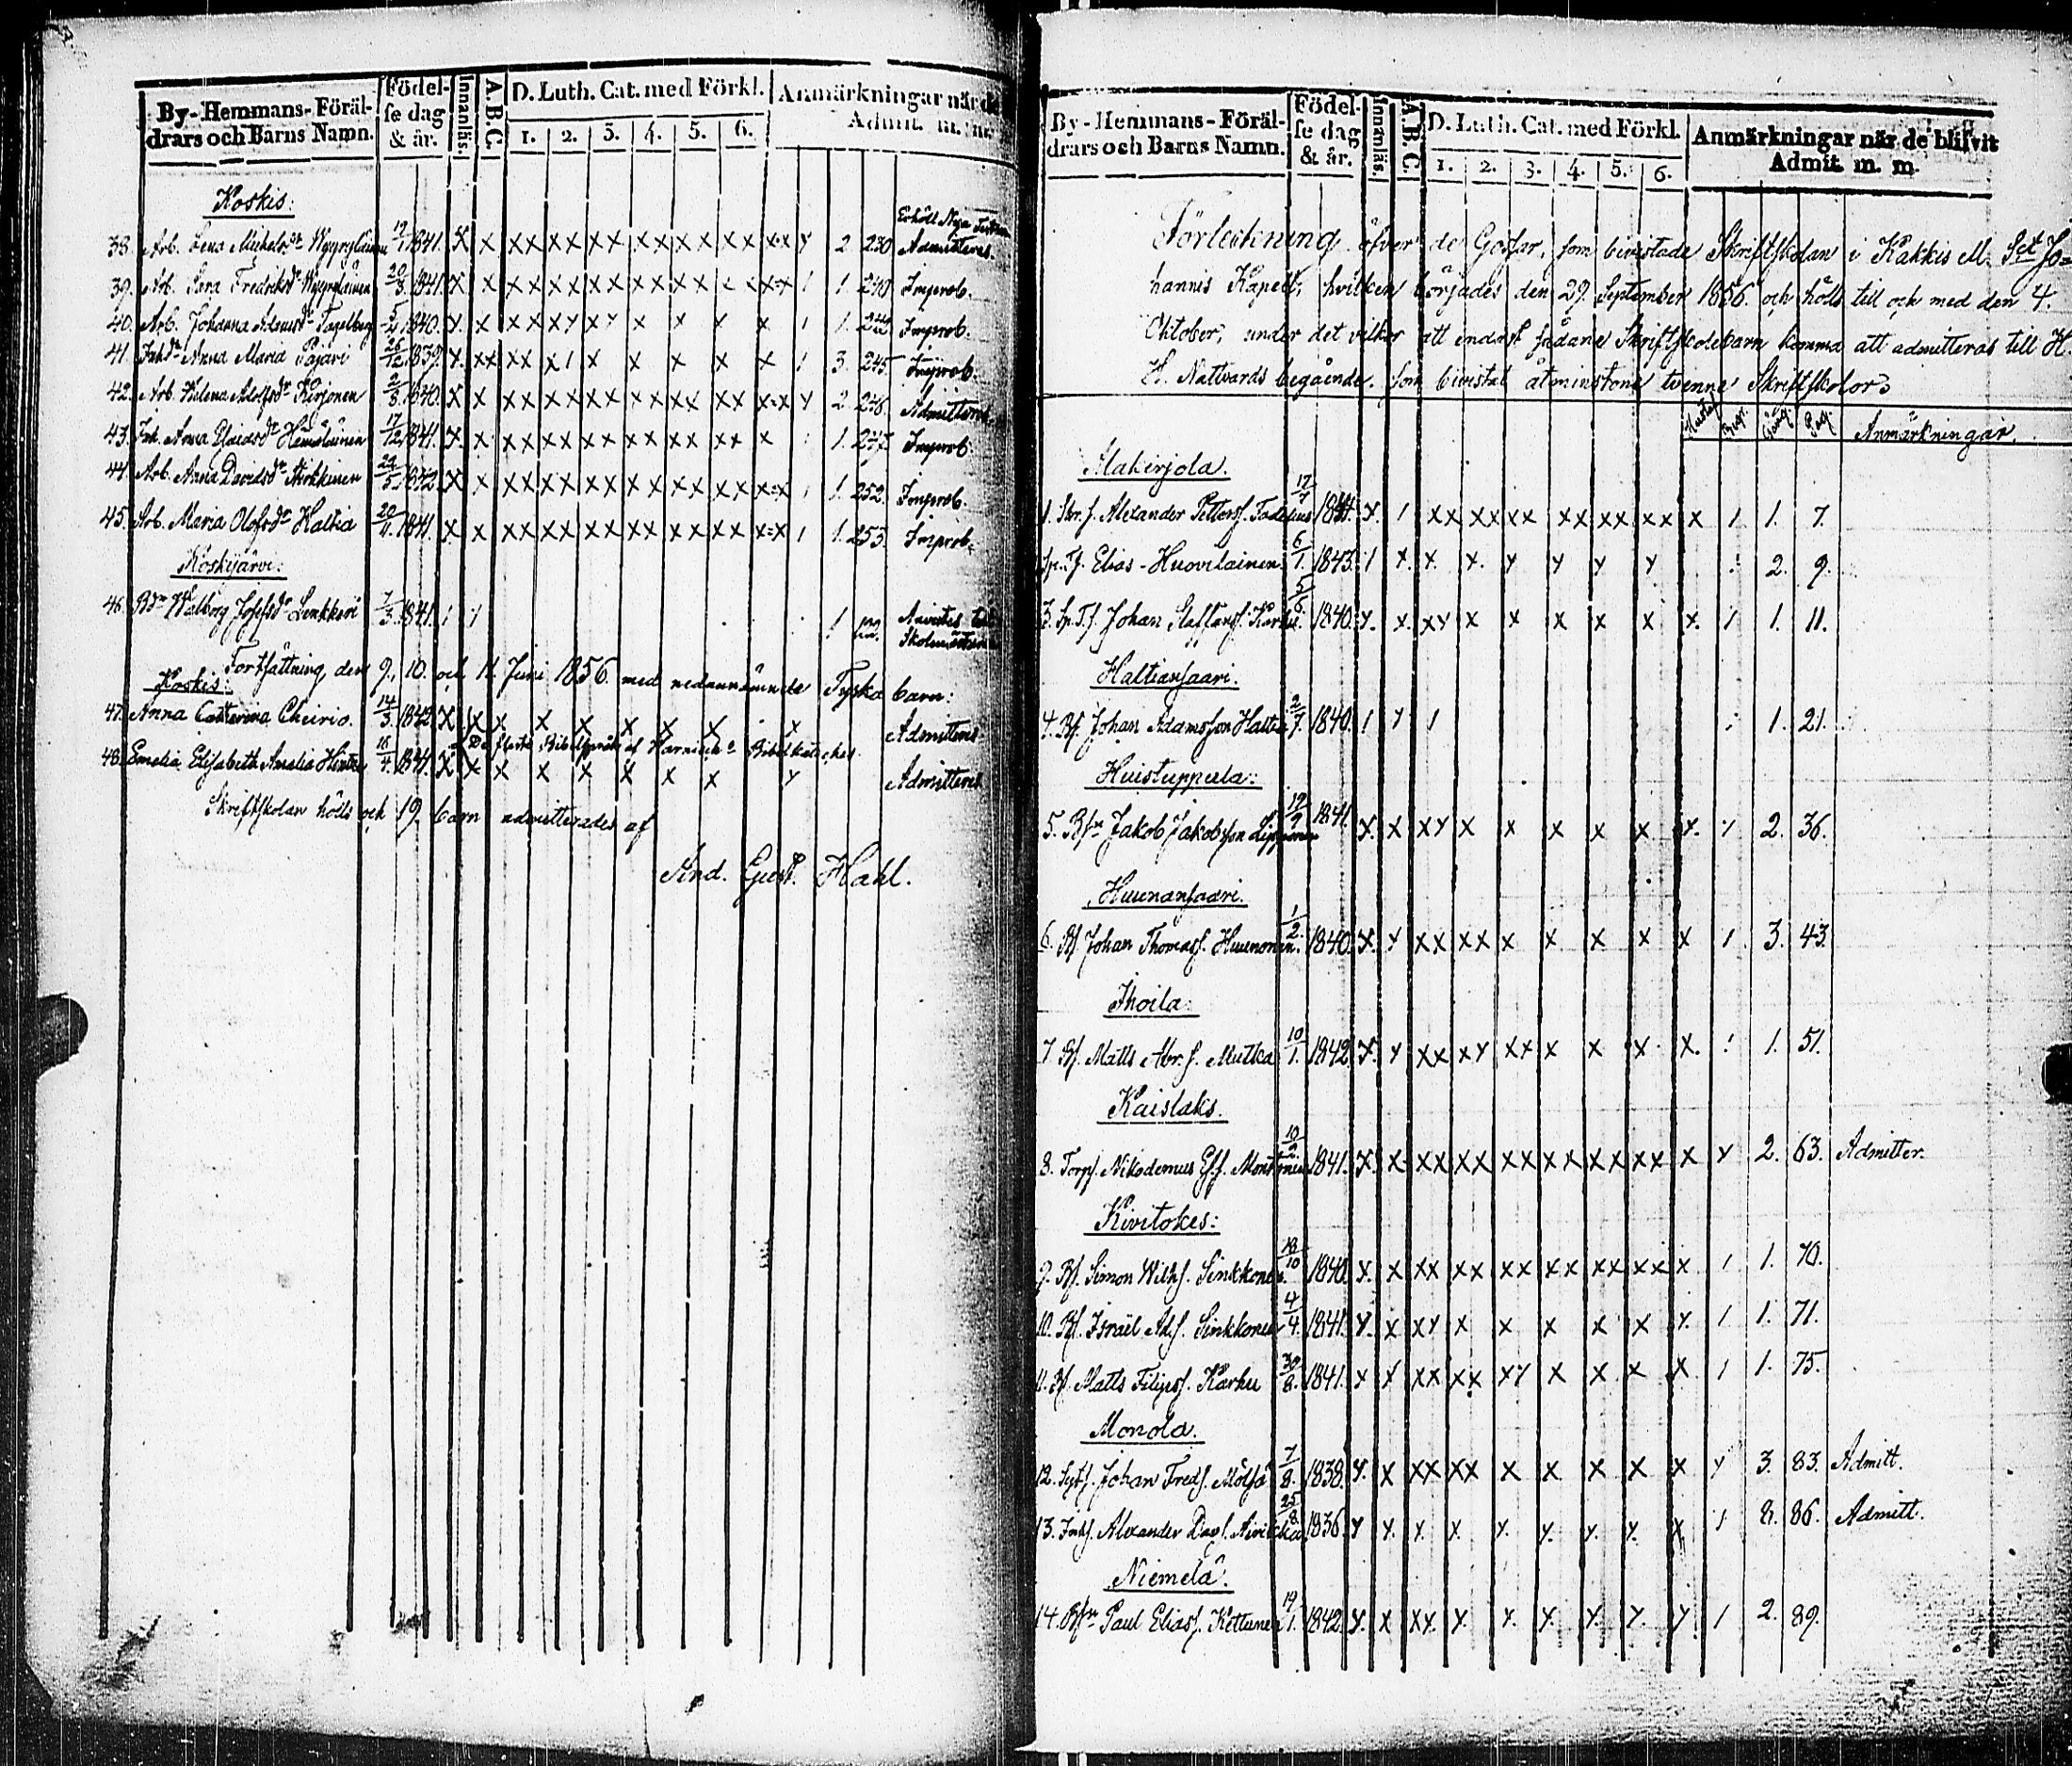 By-Hemmans-Föräl-
drars och Barns Namn.
Födel-
se dag
& år.
Innanläs.
A.B.C.
D. Luth. Cat. med Förkl.
1. 2. 3. 4. 5. 6.
Anmärkningar när de
Admit. m. m.
Koskis:
38. Arb. Lena Michelsdr 12/1 1841. x x xx xx xx xx xx xx x-x y 2 230 Admitteras.
39. Arb. Sara Fredriksdr 20/3 1841. 1 1. 240 Improb.
40. Arb. Johanna Adamsdr Fagelberg 1840. 1 1. 242 Improb.
41. Inhdr Anna Maria Pajari 26/12 1839. 1 3. 245. Improb.
42. Arb. Helena Adolfsdr Kirjonen 2/8 1840. x x xx xx xx xx xx xx x-x y 2 246. Admitteras
43. Inh. Anna Hämäläinen 17/12 1841. x x xx xx xx xx xx xx x 1. 247. Improb.
44. Arb. Anna Davidsdr Kirkkinen 29/5 1842. x x xx xx xx xx xx xx x-x 1 1. 252. Improb.
45. Arb. Maria Olofsdr Haltia 20/11 1841. x x xx xx xx xx xx xx x-x 1 1. 253. Improb.
Koskijärvi:
46. Bdr Walborg Josefsdr Lenkkeri 7/3 1841. 1 1 1
Skolmästaren
Fortsättning, den 9., 10. och 11. Juni 1856. med nedannämnde Tyska barn:
Koskis:
47. Anna Catharina Cheirio. 14/3 1842. x x x x x x x x x Admitteras
De flesta Bibelspråk af Bibelkateches
48. Emelia Elisabeth Amalia 16/4 1841. x x x x x x x x y Admitteras
Skriftskolan hölls och 19 barn admitterades af
And. Gust. Hahl.
By-Hemmans-Föräl-
drars och Barns Namn.
Födel-
se dag
& år.
Innanläs.
A.B.C.
D. Luth. Cat. med Förkl.
1. 2. 3. 4. 5. 6.
Anmärkningar när de blifvit
Admit. m. m.
Förteckning öfver de Gossar, som bevistade Skriftskolan i Kakkis M. Sct Jo=
hannis Kapell, hvilken börjades den 29. September 1856. och hölls till och med den 4.
Oktober, under det vilkor att endast sådane Skriftskolebarn komma att admitteras till H.
H. Nattvards begående, som bevistat åtminstone tvenne Skriftskolor.
Gång Pag Anmärkningar.
Alakirjola.
1. Alexander Petters. 17/7 1841. x. 1 xx xx xx xx xx xx x 1 1. 7.
Elias Huovilainen 6/1. 1843. 1 x. x. x. y y y y 2. 9.
3. Johan Staffanss. Karhu. 5/6. 1840. y. x. xy x x x x x x. 1 1. 11.
Haltiansaari.
4. Bs. Johan Adamsson Haltia 2/7. 1840. 1 y 1 1. 21.
Huistuppula:
5. Jakob Jakobsson 19/9 1841. x. x xy x x x x x x. y 2. 36.
Huunansaari.
6. Bs. Johan Thomass. Huunonen. 1/2. 1840. x. y xx xx x x x x x 1 3. 43.
Ihoila:
7. Bs. Matts Abr.s. Mutka 10/1. 1842. x. y xx xy xx x x x x. 1. 51.
Kaislaks.
8. Torps. Nikodemus 10/2. 1841. x. x xx xx xx xx xx xx x y 2. 63. Admitter.
Kivitokes:
9. Bs. Simon Wilhs. Sinkkonen. 18/10 1840. x. x xx xx xx xx xx xx x 1 1. 70.
10. Bs. Israël Ads. Sinkkonen 4/4. 1841. y. x xy x x x x x y. 1 1. 71.
11. Bs. Matts Filipss. Karhu 30/8. 1841. x x xx xx xy x x x x 1 1. 75.
Monola.
12. Johan Freds. Mölsä 7/8. 1838. y. x xx xx x x x x x y 3. 83. Admitt.
13. Inhs. Alexander Davs. 25/8 1836. y y. y. x. y. y. y. y. x 1 8. 86. Admitt.
Niemelä.
14. Paul Eliass. Kettunen 19/1. 1842. y. x xy. y. y. y. y. y. y 1 2. 89.